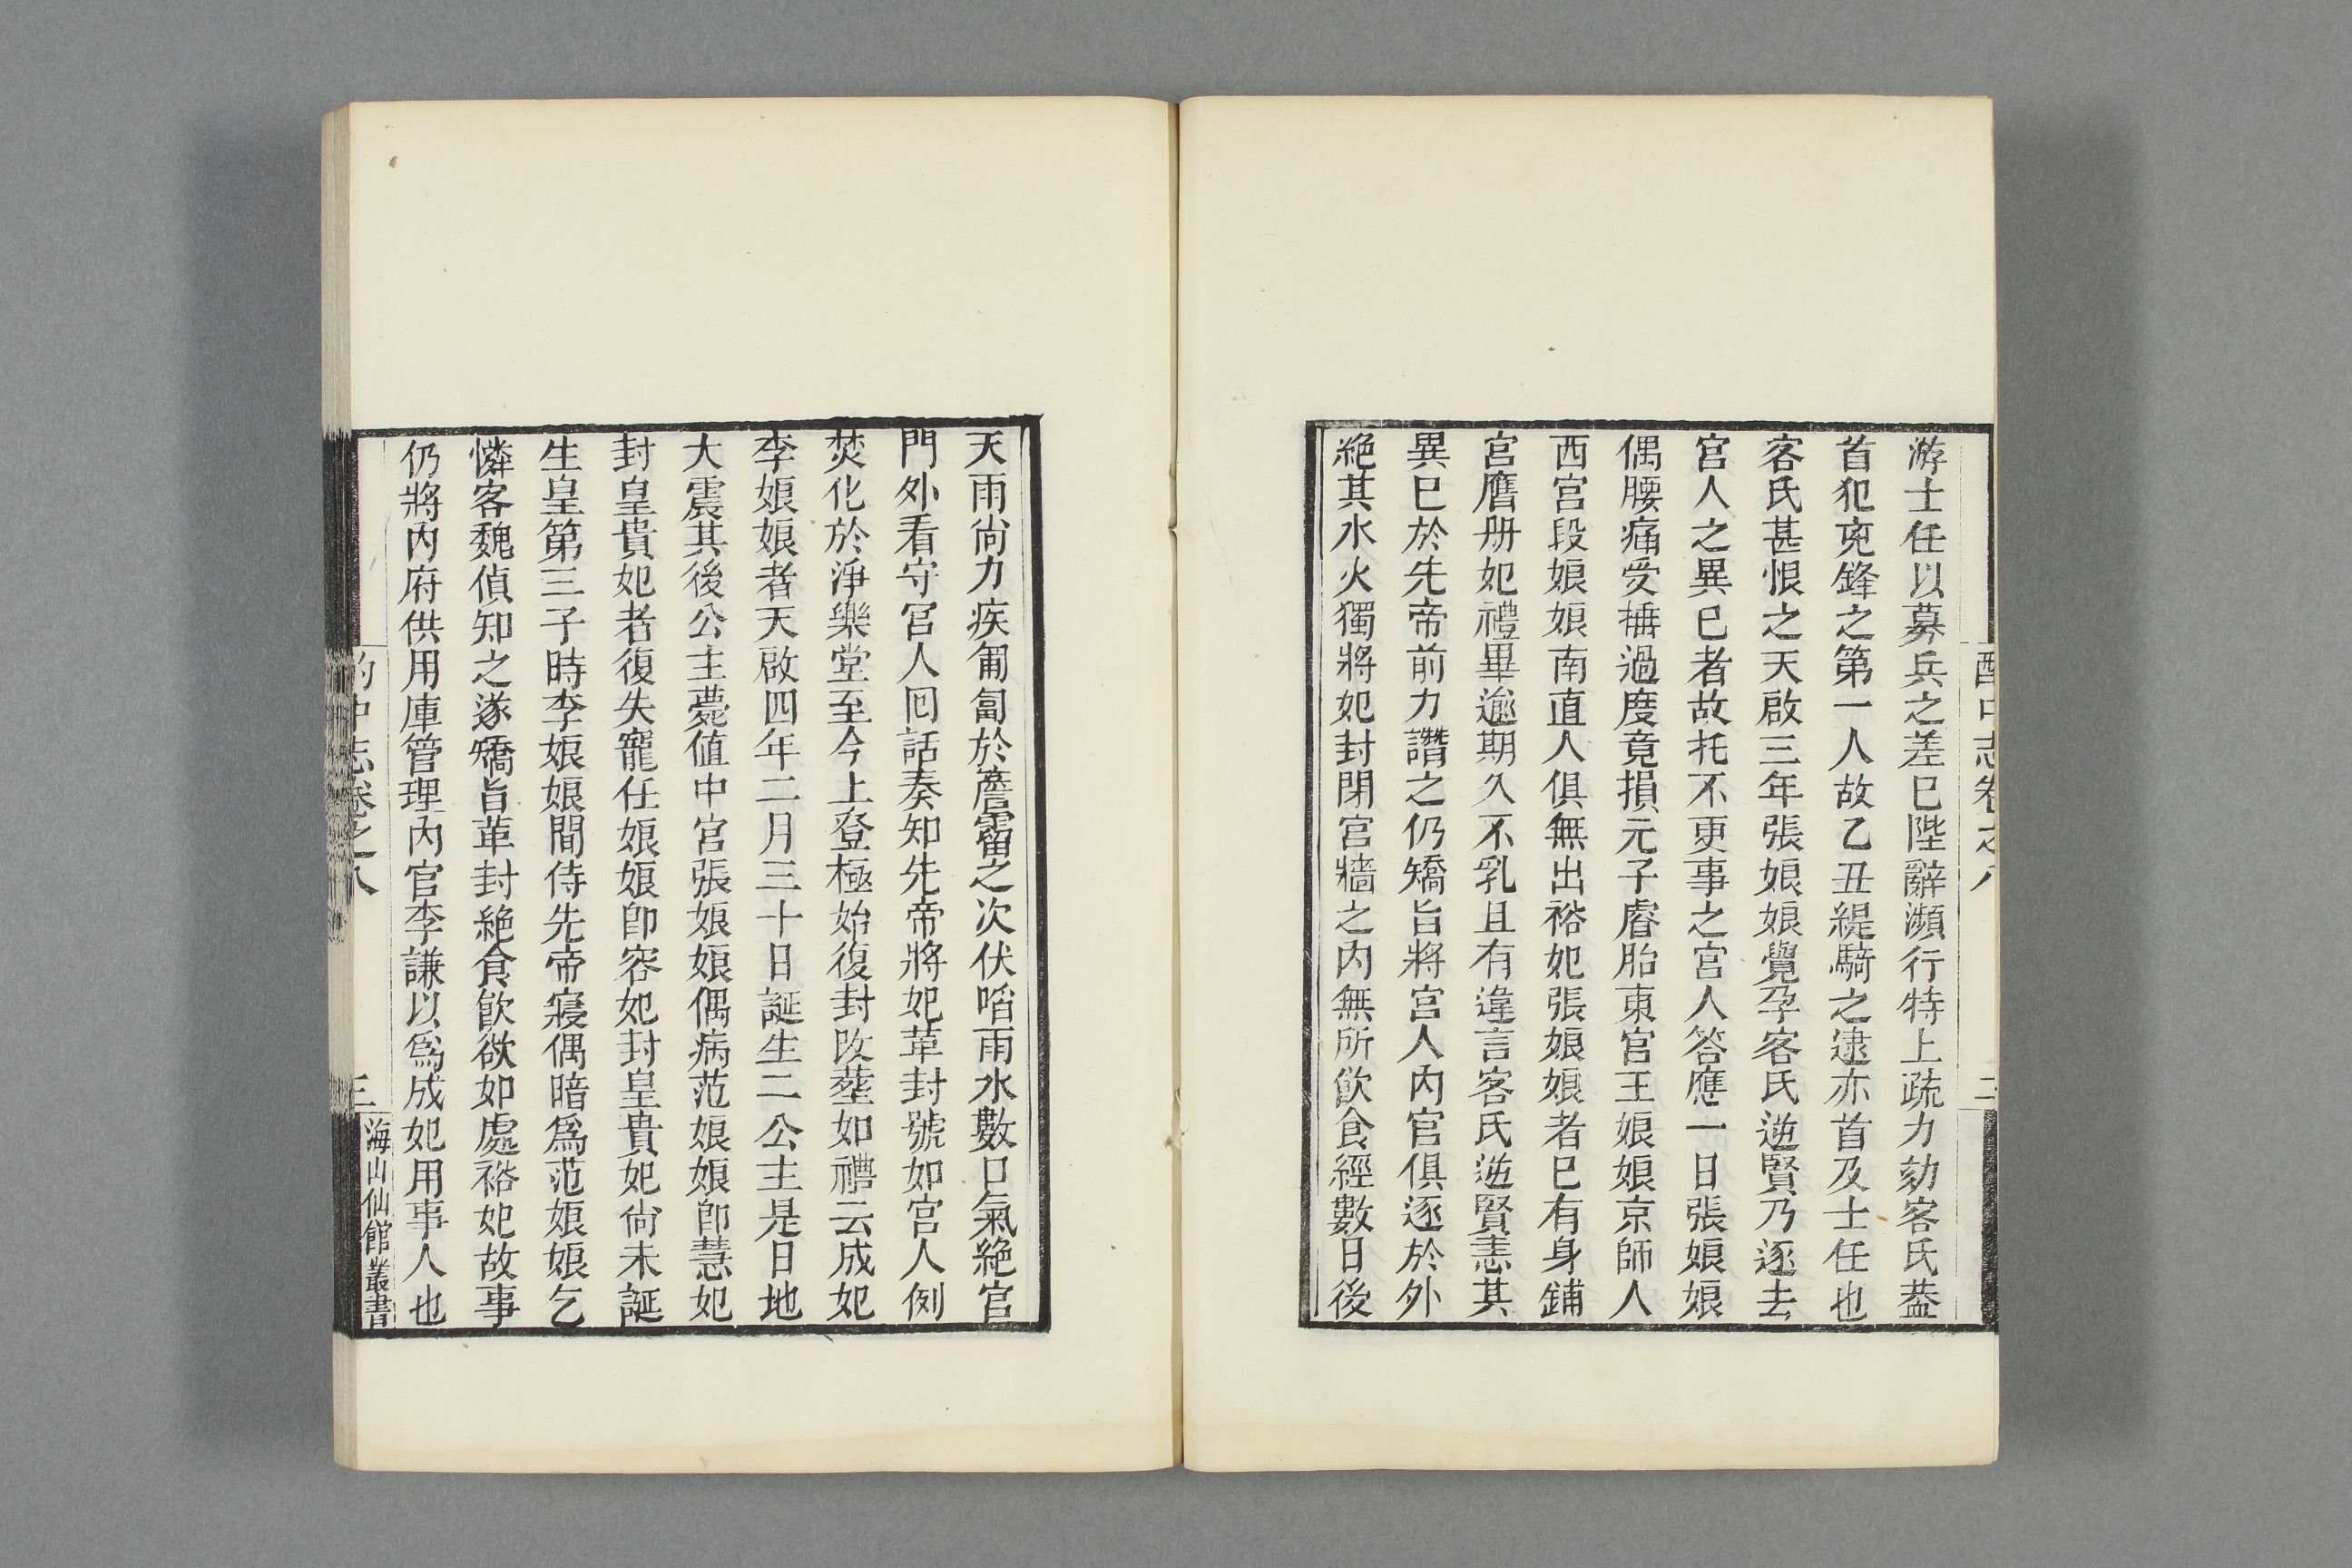 酌中志卷之八 二
游士任以募兵之差巳陛辭瀕行特上疏力劾客氏葢
首犯兇鋒之第一人故乙丑緹騎之逮亦首及士任也
客氏甚恨之天啟三年張娘娘覺孕客氏逆賢乃逐去
宮人之異巳者故托不更事之宮人答應一日張娘娘
偶腰痛受捶過度竟損元子睿胎東宮王娘娘京師人
西宮段娘娘南直人俱無出裕妃張娘娘者巳有身鋪
宮膺册妃禮畢逾期久不乳且有違言客氏逆賢恚其
異巳於先帝前力譖之仍矯旨將宮人內官俱逐於外
絕其水火獨將妃封閉宮牆之內無所飲食經數日後
天雨尙力疾匍匐於簷霤之次伏啗雨水數口氣絕宮
門外看守宮人回話奏知先帝將妃革封號如宮人例
焚化於淨樂堂至今上登極始復封改塟如禮云成妃
李娘娘者天啟四年二月三十日誕生二公主是日地
大震其後公主薨值中宮張娘娘偶病范娘娘卽慧妃
封皇貴妃者復失寵任娘娘卽容妃封皇貴妃尙未誕
生皇第三子時李娘娘間侍先帝寢偶暗爲范娘娘乞
憐客魏偵知之遂矯旨革封絕食飮欲如處裕妃故事
仍將內府供用庫管理內官李謙以爲成妃用事人也
酌中志卷之八 三 海山仙館叢書